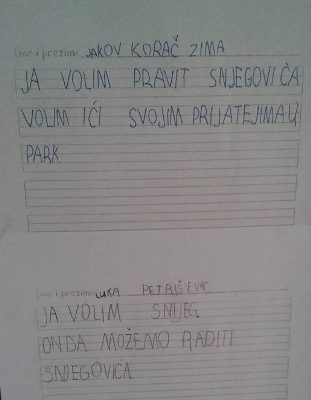 Ime i prezime JAKOV KORAČ ZIMA
JA VOLIM PRAVIT SNJEGOVIĆA
VOLIM IĆI SVOJIM PRIJATEJIMA U
PARK.
Ime i prezime LUKA PETRIŠEVAC
JA VOLIM SNIJEG
ONDA MOŽEMO RADITI
SNJEGOVIĆA